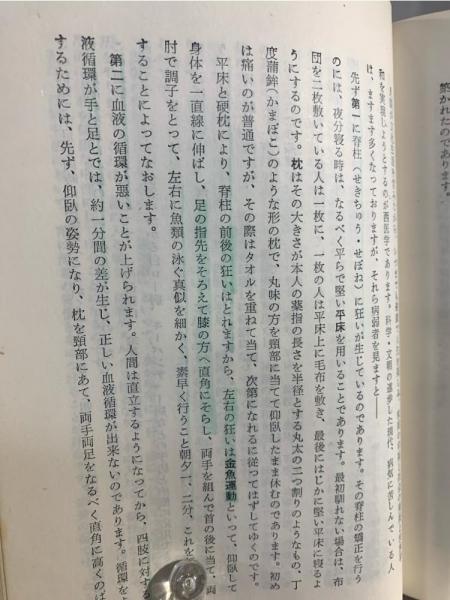 和を実現しようとするのが西医学であります。科学・文明の進歩した現代、病気に苦しんでいる人
は、ますます多くなっておりますが、それら病弱者を見ますと――
先ず第一に脊柱(せきちゅう・せぼね)に狂いが生じているのであります。その脊柱の矯正を行う
のには、夜分寝る時は、なるべく平らで堅い平床を用いることであります。最初馴れない場合は、布
団を二枚敷いている人は一枚に、一枚の人は平床上に毛布を敷き、最後にはじかに堅い平床に寝るよ
うにするのです。枕はその大きさが本人の薬指の長さを半径とする丸太の二つ割りのようなもの、丁
度蒲鉾(かまぼこ)のような形の枕で、丸味の方を頸部に当てて仰臥したまま休むのであります。初め
は痛いのが普通ですが、その際はタオルを重ねて当て、次第になれるに従ってはずしてゆくのです。
平床と硬枕により、脊柱の前後の狂いはとれますから、左右の狂いは金魚運動といって、仰臥して
身体を一直線に伸ばし、足の指先をそろえて膝の方へ直角にそらし、両手を組んで首の後に当て、両
肘で調子をとって、左右に魚類の泳ぐ真似を細かく、素早く行うこと朝夕一、二分、これを
することによってなおします。
第二に血液の循環が悪いことが上げられます。人間は直立するようになってから、四肢に対する
液循環が手と足とでは、約一分間の差が生じ、正しい血液循環が出来ないのであります。循環を
するためには、先ず、仰臥の姿勢になり、枕を頸部にあて、両手両足をなるべく直角に高くのば
築かれたのであります。